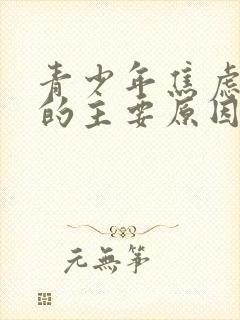 青少年焦虑
的主要原因
元無筝